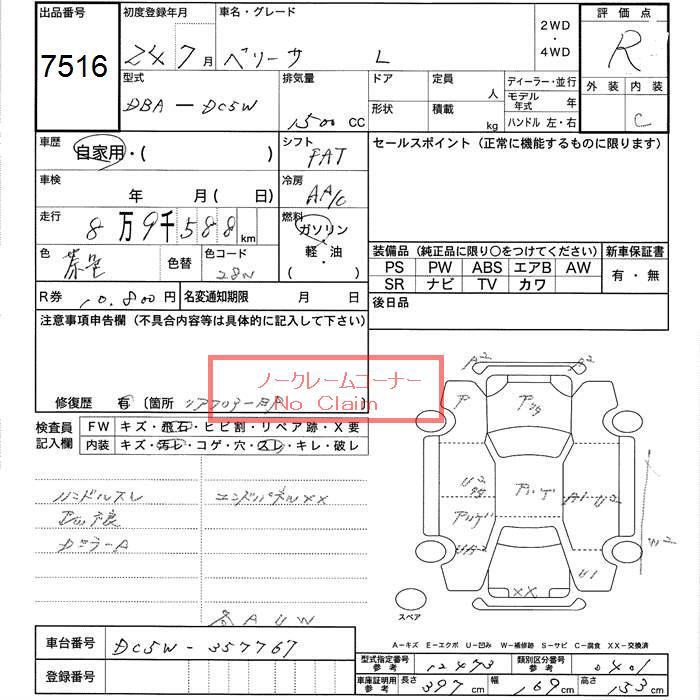 出品番号 初度登録年月 車名・グレード 2WD・4WD 評価点
7516 24 7月 ベリーサ L R
型式 排気量 ドア 定員 人 ディーラー・並行 外装 内装
DBA-DC5W 1500 CC 形状 積載 kg モデル年式 年 C
ハンドル 左・右
車歴 自家用・( ) シフト FAT セールスポイント (正常に機能するものに限ります)
車検 年 月 ( 日) 冷房 AA/C
走行 8万9千588 km 燃料 ガソリン・軽油・( )
色 色替 色コード 28N
装備品 (純正品に限り○をつけてください) 新車保証書
PS PW ABS エアB AW 有・無
SR ナビ TV カワ
R券 10,800円 名変通知期限 月 日 後日品
注意事項申告欄 (不具合内容等は具体的に記入して下さい)
ノークレームコーナー
No Claim
修復歴 有 〔箇所 リアフロアーAA
検査員記入欄 FW キズ・飛石・ヒビ割・リペア跡・X要
内装 キズ・汚レ・コゲ・穴・スレ・キレ・破レ
ハンドルスレ エンドパネルXX
A2 A2
U2
A1 U2
U1
XX
スペア
A-キズ E-エクボ U-凹み W-補修跡 S-サビ C-腐食 XX-交換済
車台番号 DC5W-357767
登録番号
型式指定番号 参考 12473 類別区分番号 参考 0401
車庫証明用 参考 長さ 397 cm 幅 169 cm 高さ 153 cm